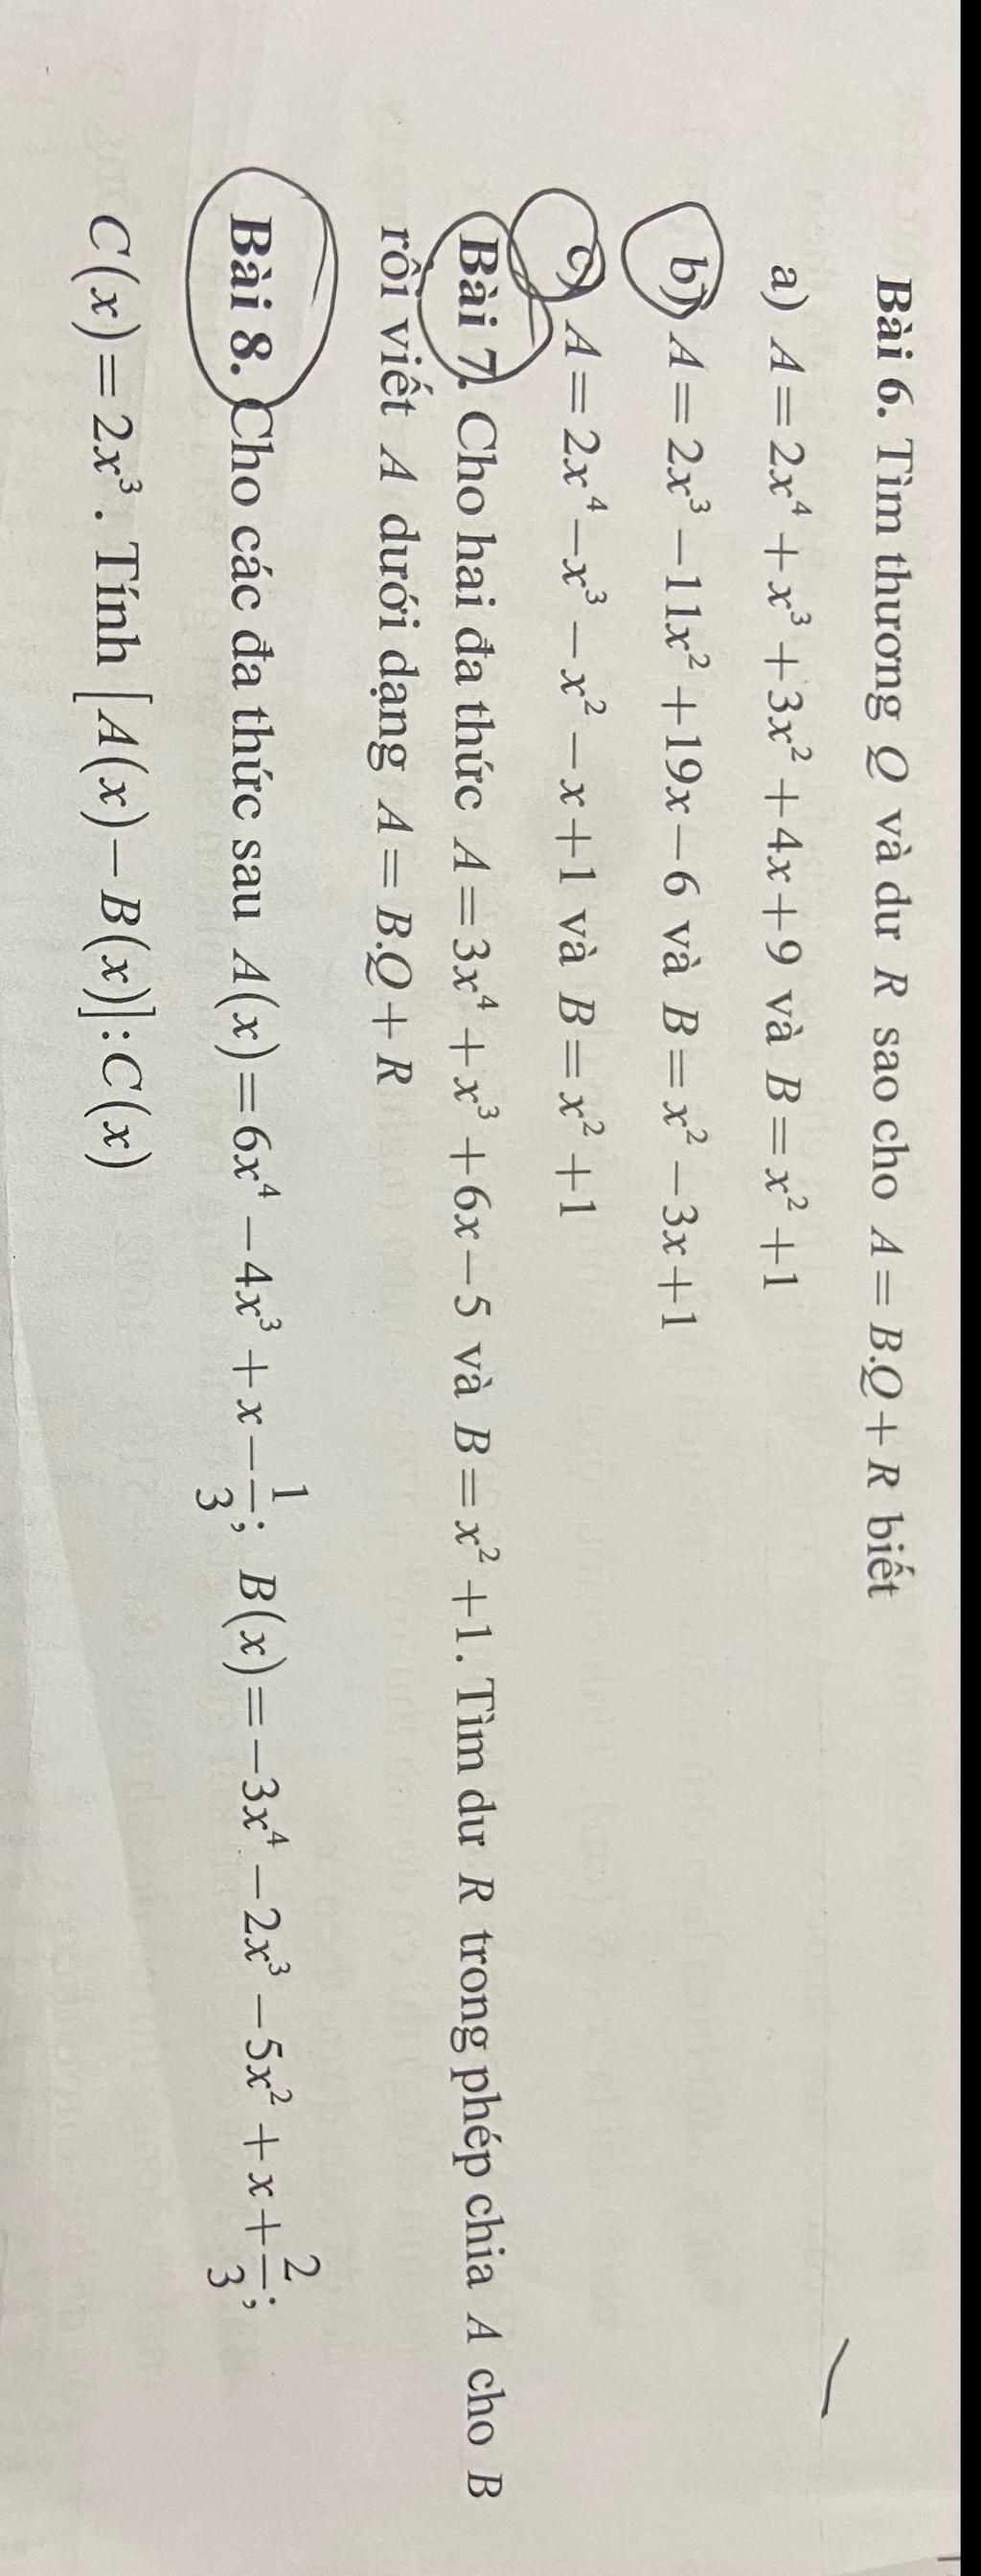 Bài 6. Tìm thương Q và dư R sao cho A = B.Q + R biết
a) A = 2x⁴ + x³ + 3x² + 4x + 9 và B = x² + 1
b) A = 2x³ − 11x² + 19x − 6 và B = x² − 3x + 1
c) A = 2x⁴ − x³ − x² − x + 1 và B = x² + 1
Bài 7. Cho hai đa thức A = 3x⁴ + x³ + 6x − 5 và B = x² + 1. Tìm dư R trong phép chia A cho B
rồi viết A dưới dạng A = B.Q + R
Bài 8. Cho các đa thức sau A(x) = 6x⁴ − 4x³ + x − 1/3; B(x) = −3x⁴ − 2x³ − 5x² + x + 2/3;
C(x) = 2x³. Tính [A(x) − B(x)]:C(x)